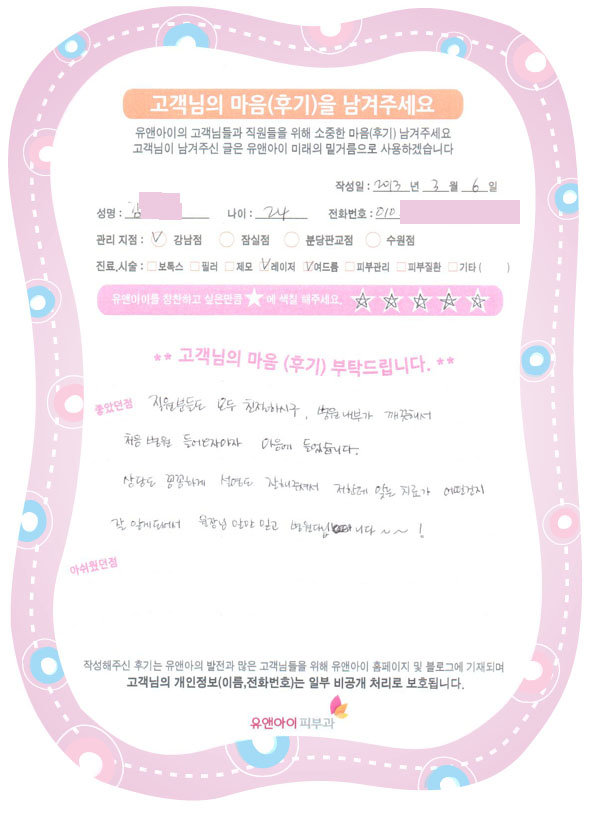 고객님의 마음(후기)을 남겨주세요
유앤아이의 고객님들과 직원들을 위해 소중한 마음(후기) 남겨주세요
고객님이 남겨주신 글은 유앤아이 미래의 밑거름으로 사용하겠습니다
작성일 : 2013 년 3 월 6 일
성명 : 김 나이 : 24 전화번호 : 010
관리 지점 : V 강남점 잠실점 분당판교점 수원점
진료,시술 : 보톡스 필러 제모 V레이저 V여드름 피부관리 피부질환 기타 ( )
유앤아이를 칭찬하고 싶은만큼 ★에 색칠 해주세요. ☆ ☆ ☆ ☆ ☆
** 고객님의 마음 (후기) 부탁드립니다. **
좋았던점 직원분들도 모두 친절하시구, 병원내부가 깨끗해서
처음 병원 들어오자마자 마음에 들었습니다.
상담도 꼼꼼하게 설명도 잘해주셔서 저한테 맞는 치료가 어떤건지
잘 알게되어서 원장님 말만 믿고 ~~!
아쉬웠던점
작성해주신 후기는 유앤아의 발전과 많은 고객님들을 위해 유앤아이 홈페이지 및 블로그에 기재되며
고객님의 개인정보(이름,전화번호)는 일부 비공개 처리로 보호됩니다.
유앤아이 피부과